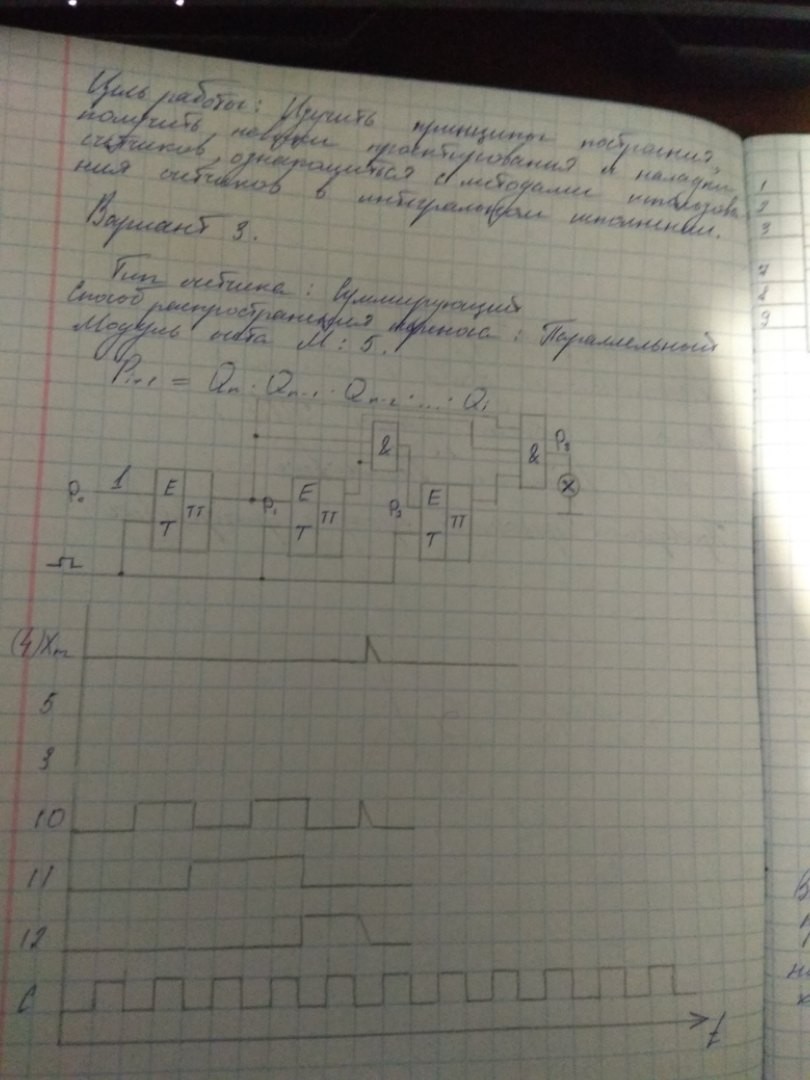 Цель работы: Изучить принципы построения,
получить навыки проектирования и наладки
счётчиков, ознакомиться с методами использова-
ния счетчиков в интегральном исполнении.
Вариант 3.
Тип счетчика: Суммирующий
Способ распространения переноса: Параллельный
Модуль счета M: 5.
Pₙ₊₁ = Qₙ · Qₙ₋₁ · Qₙ₋₂ · ... · Q₁
& & P₃
P₀ 1 E T TT P₁ E T TT P₂ E T TT X
(4)
5
3
10
11
12
C
t
1
2
3